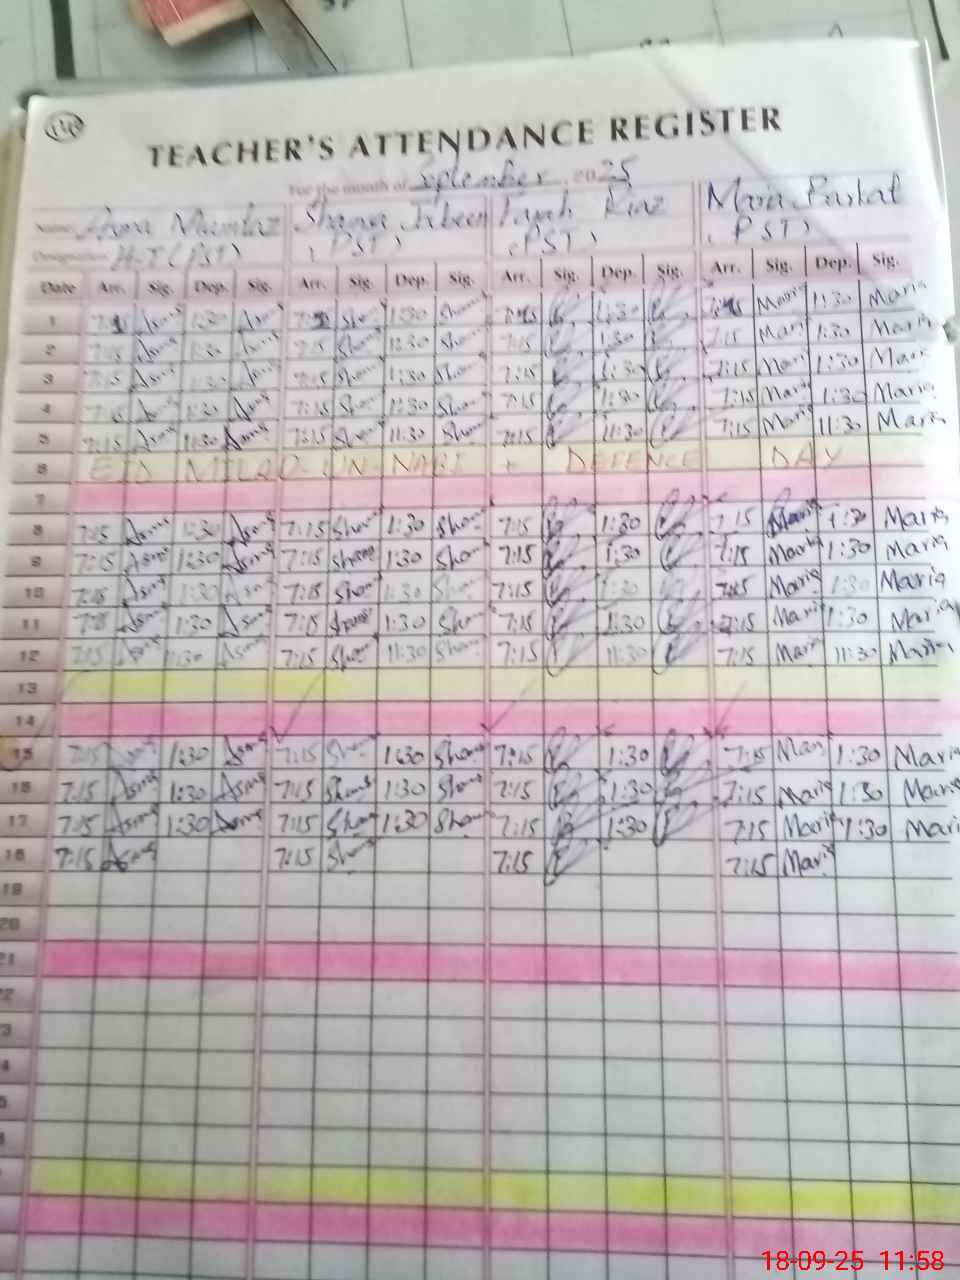 TEACHER'S ATTENDANCE REGISTER
For the month of September, 2025
Name Asma Mumtaz Shama Jabeen Farah Riaz Maria Barkat
Designation H.T (PST) (PST) (PST) (PST)
Date Arr. Sig. Dep. Sig. Arr. Sig. Dep. Sig. Arr. Sig. Dep. Sig. Arr. Sig. Dep. Sig.
1 7:15 Asma 1:30 Asma 7:15 Sham 1:30 Sham 7:15 1:30 7:15 Maria 11:30 Maria
2 7:15 Asma 1:30 Asma 7:15 Sham 1:30 Sham 7:15 1:30 7:15 Mari 1:30 Maria
3 7:15 Asma 1:30 Asma 7:15 Sham 1:30 Sham 7:15 1:30 7:15 Mari 1:30 Maria
4 7:15 Asma 1:30 Asma 7:15 Sham 1:30 Sham 7:15 1:30 7:15 Mari 1:30 Maria
5 7:15 Asma 11:30 Asma 7:15 Sham 11:30 Sham 7:15 11:30 7:15 Mari 11:30 Maria
6 EID MILAD-UN-NABI + DEFENCE DAY
7
8 7:15 Asma 1:30 Asma 7:15 Sham 1:30 Sham 7:15 1:30 7:15 Maria 1:30 Maria
9 7:15 Asma 1:30 Asma 7:15 Sham 1:30 Sham 7:15 1:30 7:15 Maria 1:30 Maria
10 7:15 Asma 1:30 Asma 7:15 Sham 1:30 Sham 7:15 1:30 7:15 Maria 1:30 Maria
11 7:15 Asma 1:30 Asma 7:15 Sham 1:30 Sham 7:15 1:30 7:15 Maria 1:30 Maria
12 7:15 Asma 11:30 Asma 7:15 Sham 11:30 Sham 7:15 11:30 7:15 Mari 11:30 Maria
13
14
15 7:15 Asma 1:30 Asma 7:15 Sham 1:30 Sham 7:15 1:30 7:15 Mari 1:30 Maria
16 7:15 Asma 1:30 Asma 7:15 Sham 1:30 Sham 7:15 1:30 7:15 Maria 1:30 Maria
17 7:15 Asma 1:30 Asma 7:15 Sham 1:30 Sham 7:15 1:30 7:15 Maria 1:30 Mari
18 7:15 Asma 7:15 Sham 7:15 7:15 Maria
19
20
21
22
18-09-25 11:58